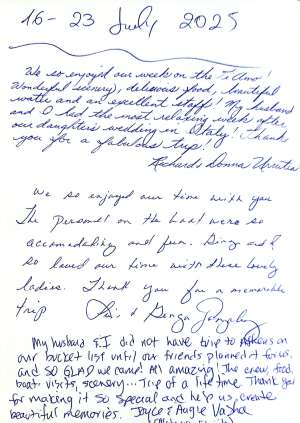 16 - 23 July 2025
We so enjoyed our week on the Ti Amo!
Wonderful scenery, delicious food, beautiful
water and an excellent staff! My husband
and I had the most relaxing week after
our daughter's wedding in Italy! Thank
you for a fabulous trip!
Richard & Donna
We so enjoyed our time with you
The personel on the boat were so
accomodating and fun. and I
so loved our time with these lovely
ladies. Thank you for a memorable
trip &
My husband & I did not have trip to on
our bucket list until our friends planned it for us,
and SO GLAD we came! All amazing! The crew, food,
boat, visits, scenery... Trip of a life time. Thank you
for making it so special and help us create
beautiful memories. Joyce & Augie